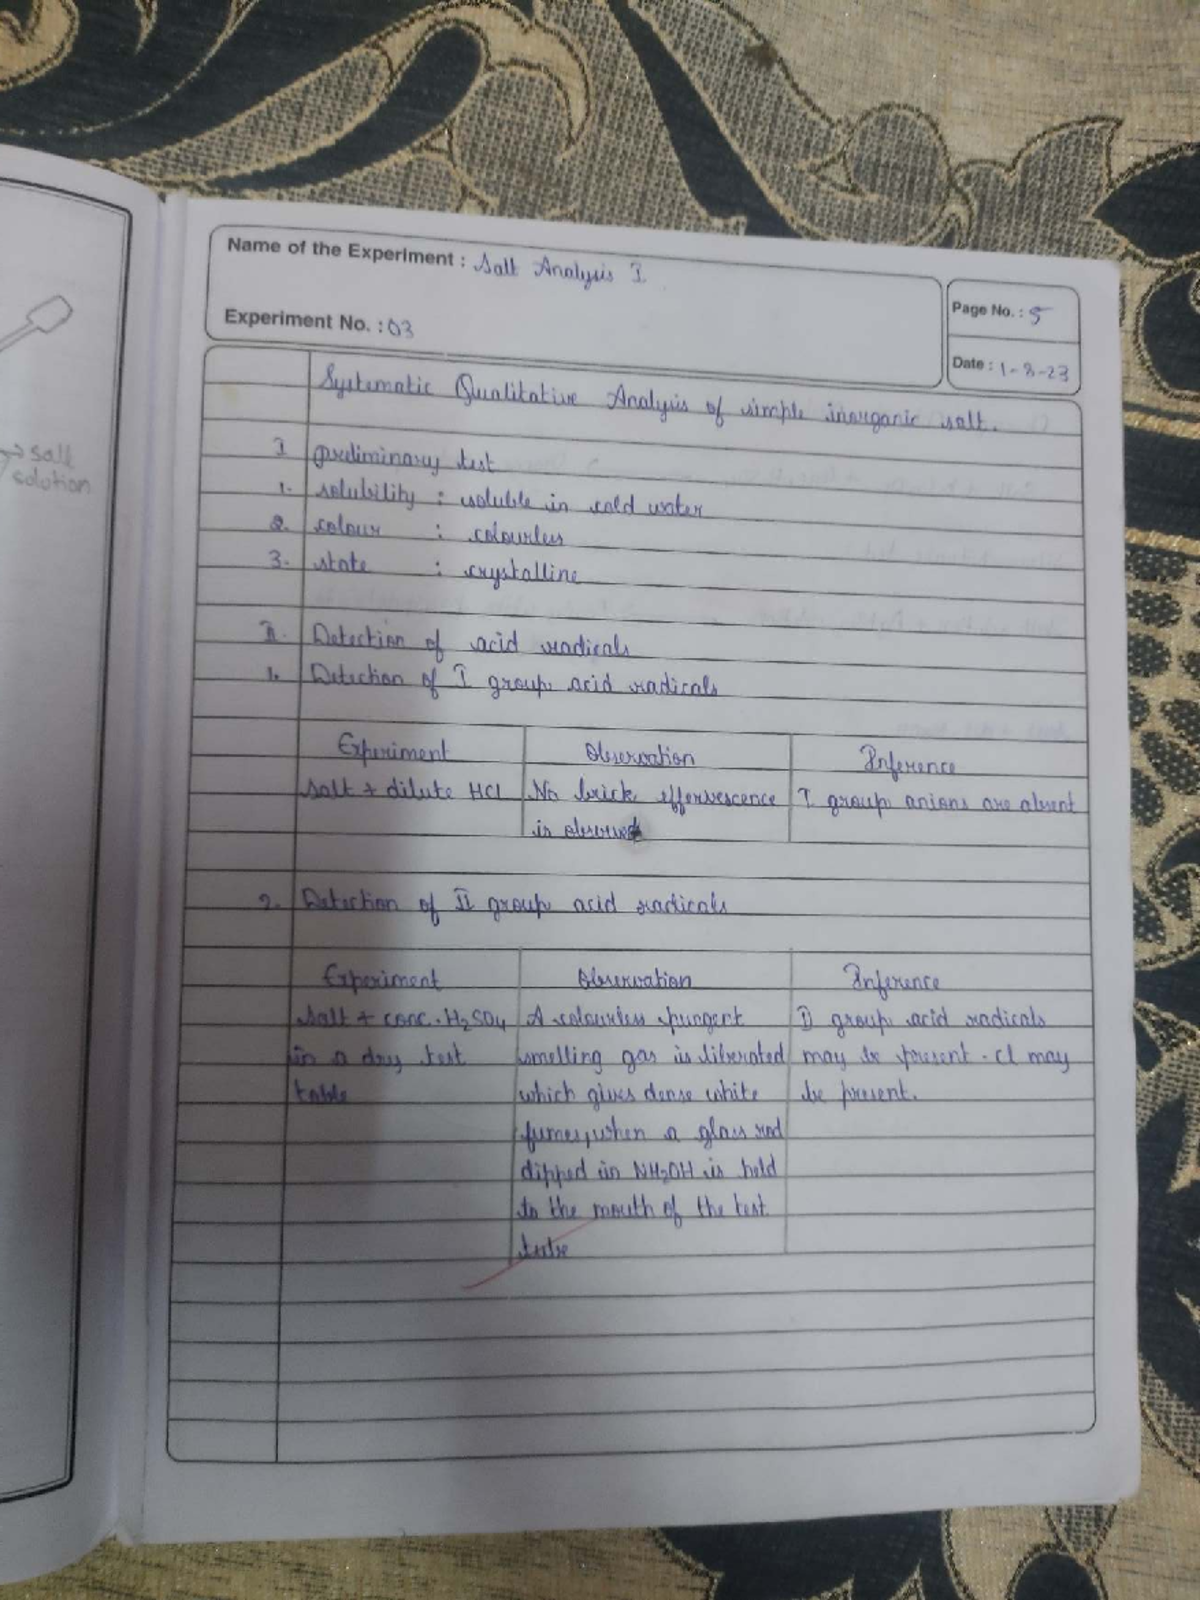 Name of the Experiment : Salt Analysis I
Experiment No. : 03
Page No. : 5
Date : 1-8-23
→ salt
solution
Systematic Qualitative Analysis of simple inorganic salt.
I preliminary test
1. solubility : soluble in cold water
2. colour : colourless
3. state : crystalline
II. Detection of acid radicals
1. Detection of I group acid radicals
Experiment Observation Inference
salt + dilute HCl No brick effervescence I group anions are absent
is observed
2. Detection of II group acid radicals
Experiment Observation Inference
salt + conc. H2SO4 A colourless pungent II group acid radicals
in a dry test smelling gas is liberated may be present. Cl may
table which gives dense white be present.
fumes, when a glass rod
dipped in NH2OH is held
to the mouth of the test
tube